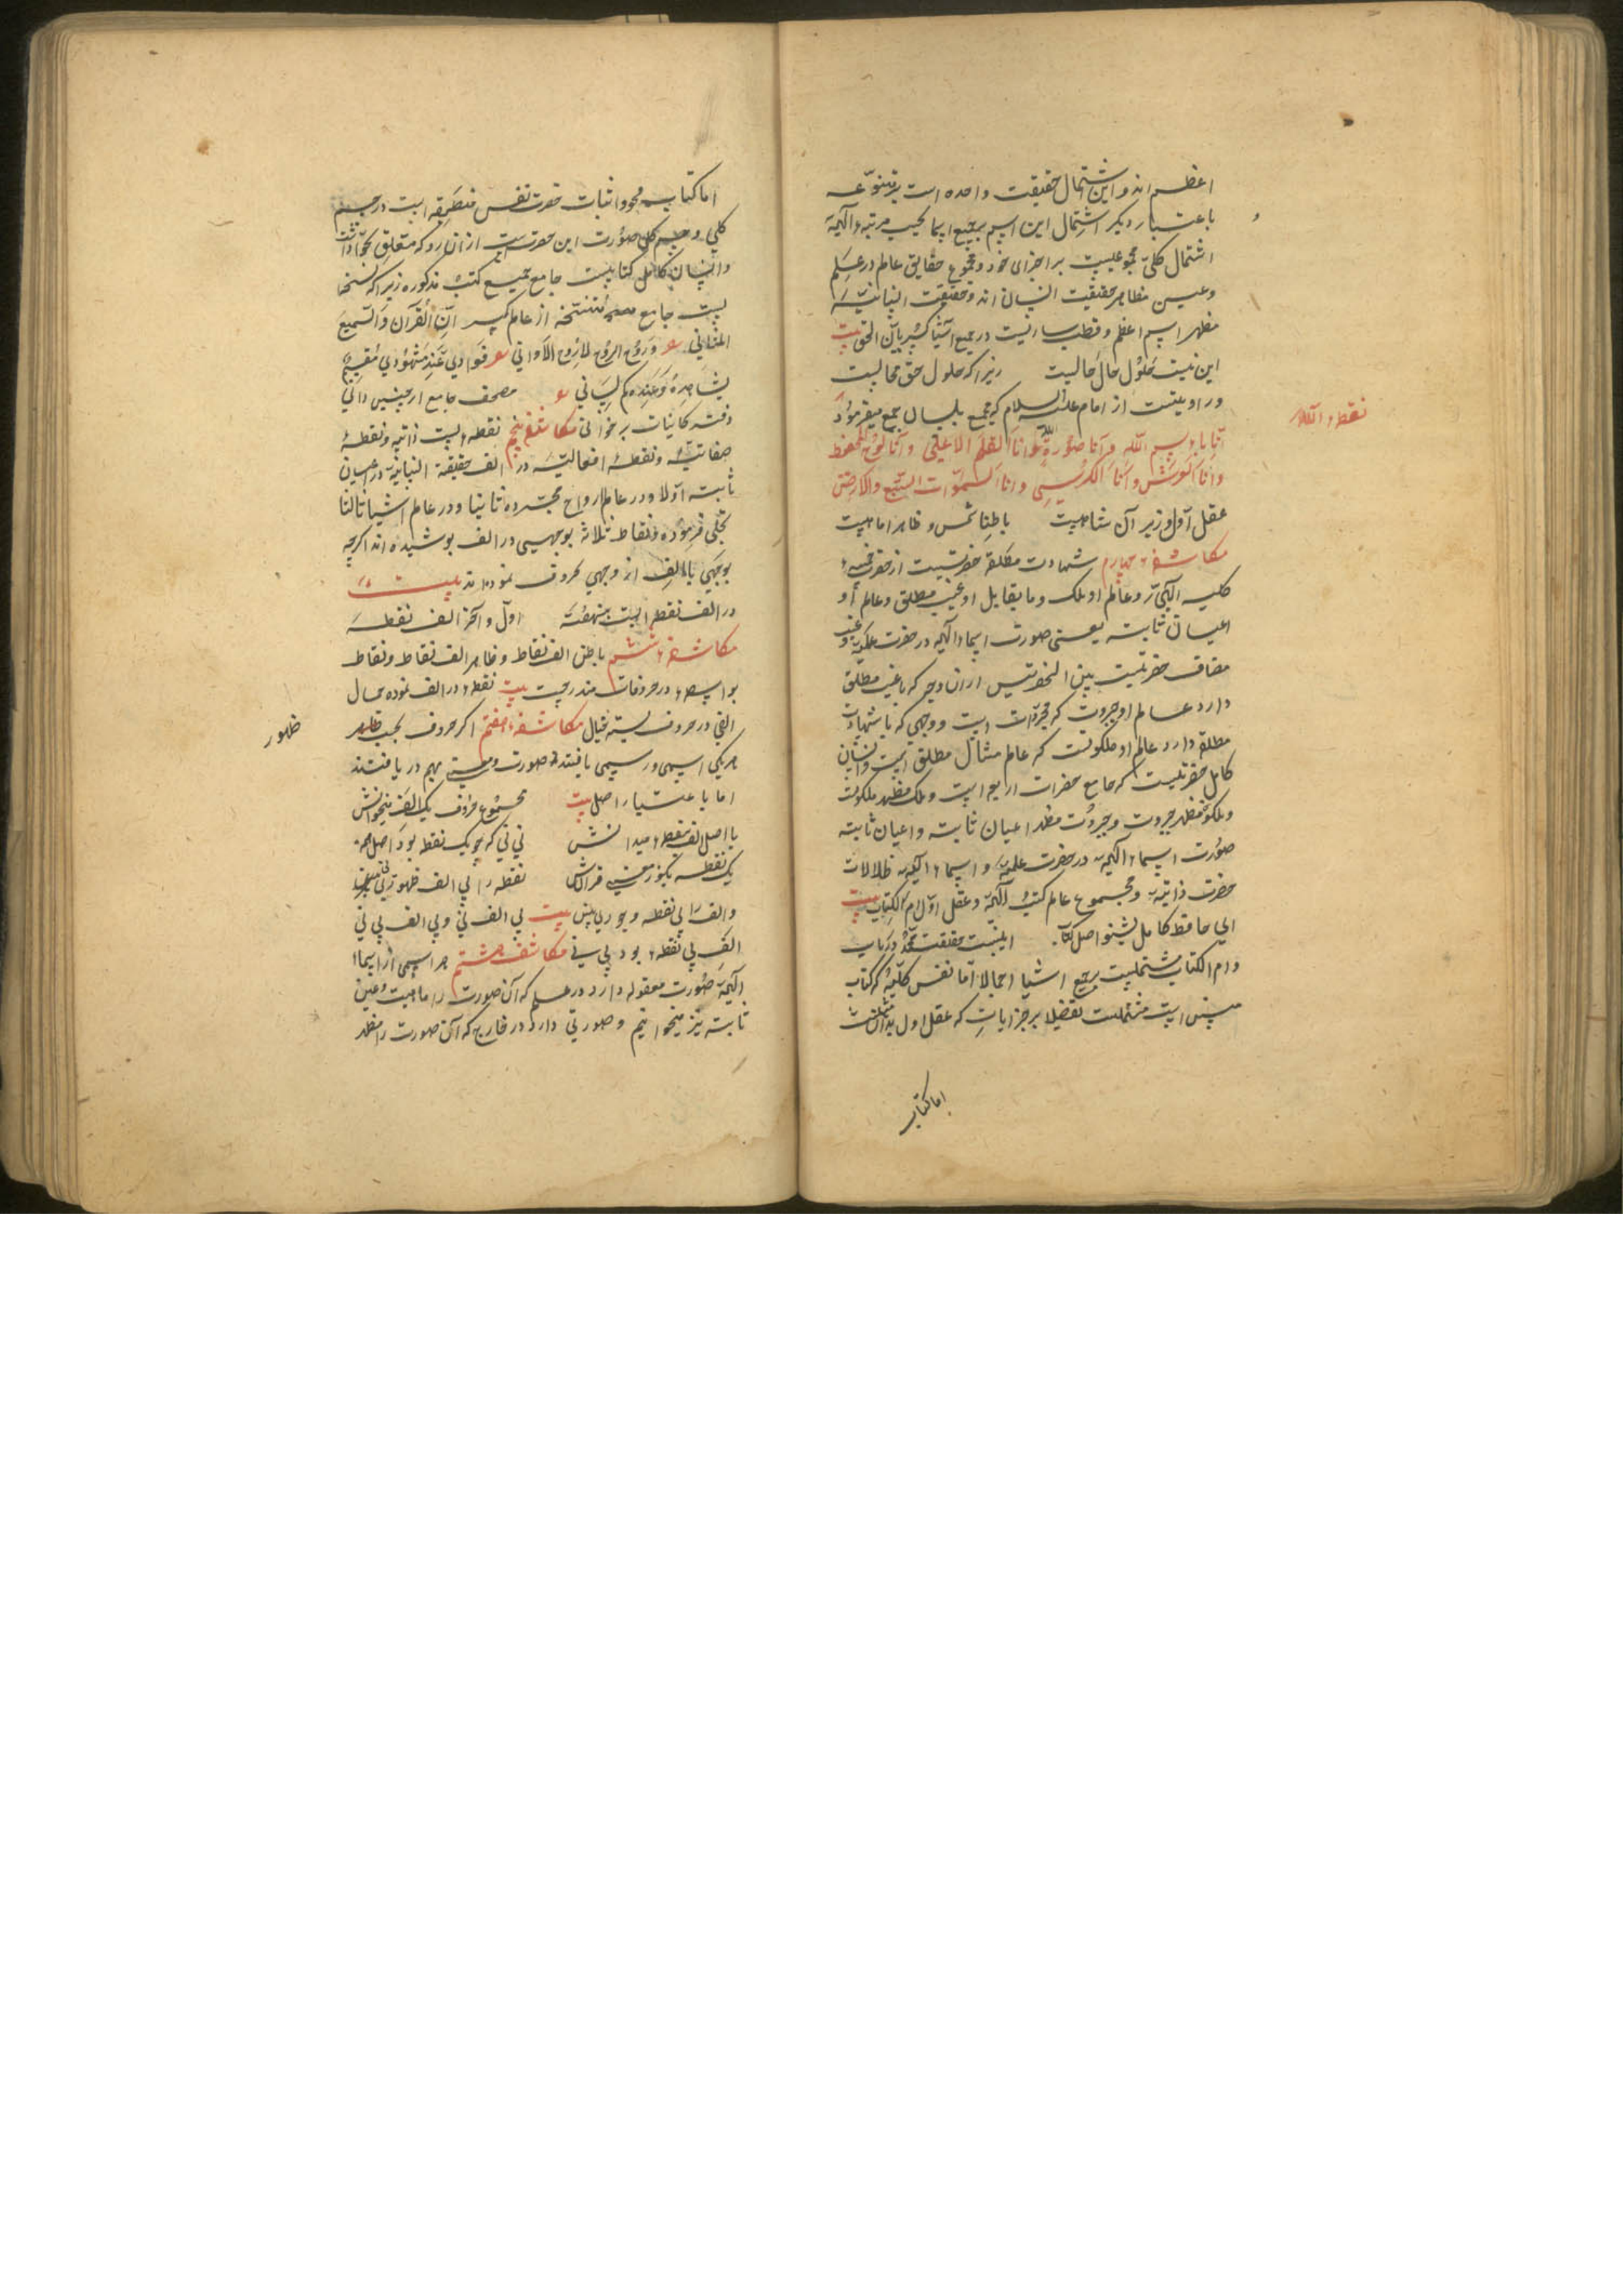 اعظم اند و این اشتمال حقیقت واحده است بر تنوعه
باعتبار دیگر اشتمال این اسم بجمیع اسما بحسب مرتبهٔ الهیه
اشتمال کلی مجموعیست بر اجزای خود و مجموع حقایق عالم در علم
و عین مظاهر حقیقت انسان اند و حقیقت انسانیه
مظهر اسم اعظم و قطب ساریست در جمیع اشیا کسریان الحق بیت
این نیست حلول حال حالیست زیرا که حلول حق محالیست
و روایتست از امام علیه السلام که مجمع بلسان جمع میفرمود
نقطهٔ الله
انا باء بسم الله و انا صورة الله و انا القلم الاعلی و انا لوح المحفوظ
و انا العرش و انا الکرسی و انا السموات السبع والارض
عقل اول وزیر آن شاهیست باطن شمس و ظاهر ماهیست
مکاشفهٔ چهارم شهادت مطلقه حضرتیست از حضرت خمسهٔ
کلیه الهیه و عالم او ملک و ما یقابل او غیب مطلق و عالم او
اعیان ثابته یعنی صورت اسماء الهیه در حضرت علمیه و غیب
مضاف حضرتیست بین الحضرتین از آن وجه که با غیب مطلق
دارد عالم او جبروت که مجردات است و وجهی که با شهادت
مطلقه دارد عالم او ملکوتست که عالم مثال مطلق است و انسان
کامل حضرتیست که جامع حضرات اربع است و ملک مظهر ملکوت
و ملکوت مظهر جبروت و جبروت مظهر اعیان ثابته و اعیان ثابته
صورت اسماء الهیه در حضرت علمیه و اسماء الهیه ظلالات
حضرت ذاتیه و مجموع عالم کتب الهیه و عقل اول ام الکتاب بیت
ای حافظ کامل بشنو اصل کتاب اینست حقیقت محمد دریاب
و ام الکتاب مشتملیست بجمیع اشیا اجمالا اما نفس کلیه که کتاب
مبین است مشتملست تفضیلا بر جزایات که عقل اول بدان مشتملست
اما کتاب
اما کتاب محو و اثبات حضرت نفس منطبعه است در جسم
کلی و جسم کل صورت این حضرتست از آن رو که متعلق بحوادثست
و انسان کامل کتابیست جامع جمیع کتب مذکوره زیرا که نسخه
ایست جامع منتسخه از عالم کبیر ان القرآن والسبع
المثانی ع و روح الروح لا روح الاوانی ع فوادی عند مشهودی مقیم
یشاهده و عنده کم لسانی ع مصحف جامع ار چنین دانی
دفتر کاینات بر خوانی مکاشفهٔ پنجم نقطه ایست ذاتیه و نقطهٔ
صفاتیه و نقطهٔ افعالیه در الف حقیقة انسانیه در اعیان
ثابته اولا و در عالم ارواح مجرده ثانیا و در عالم اشیا ثالثا
تجلی فرموده و نقاط ثلاثه بوجهی در الف پوشیده اند اگرچه
بوجهی بالف از وجهی حروف نموده اند بیت
در الف نقطه ایست بنهفته اول و آخر الف نقطه
مکاشفهٔ ششم باطن الف نقاط و ظاهر الف نقاط و نقاط
بواسطهٔ در حروفات مندرجست بیت نقطهٔ در الف نموده جمال
الفی در حروف بسته خیال مکاشفهٔ هفتم اگر حروف بحسب ظاهر
ظهور
هر یکی اسمی و رسمی یافتند و صورت و معنی بهم در یافتند
اما باعتبار اصل بیت مجموع حروف یک الف میخوانش
با اصل الف نقطهٔ میدانش نی نی که چو یک نقطه بود اصل همه
یک نقطه بگو ز معنی قرآنش نقطه را بی الف ظهوری نی
و الف را بی نقطه وجودی نیست بیت بی الف نی و بی الف بی نی
الف بی نقطه بود بی نی مکاشفهٔ هشتم هر اسمی از اسماء
الهیه صورت معقوله دارد در علم که آن صورت را ماهیت و عین
ثابته نیز میخوانیم و صورتی دارد در خارج که آن صورت را مظهر